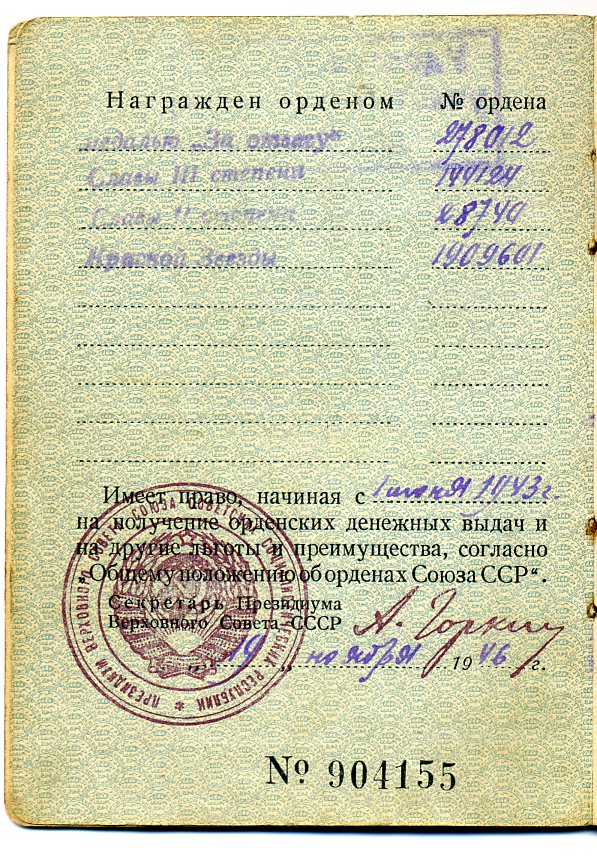 Награжден орденом № ордена
медалью „За отвагу“ 278012
Славы III степени 144124
Славы II степени 28740
Красной Звезды 1909601
Имеет право, начиная с 1 июня 1943 г.
на получение орденских денежных выдач и
на другие льготы и преимущества, согласно
„Общему положению об орденах Союза ССР“.
Секретарь Президиума
Верховного Совета СССР А. Горкин
„19“ ноября 1946 г.
ПРЕЗИДИУМ ВЕРХОВНОГО СОВЕТА СОЮЗА СОВЕТСКИХ СОЦИАЛИСТИЧЕСКИХ РЕСПУБЛИК
№ 904155